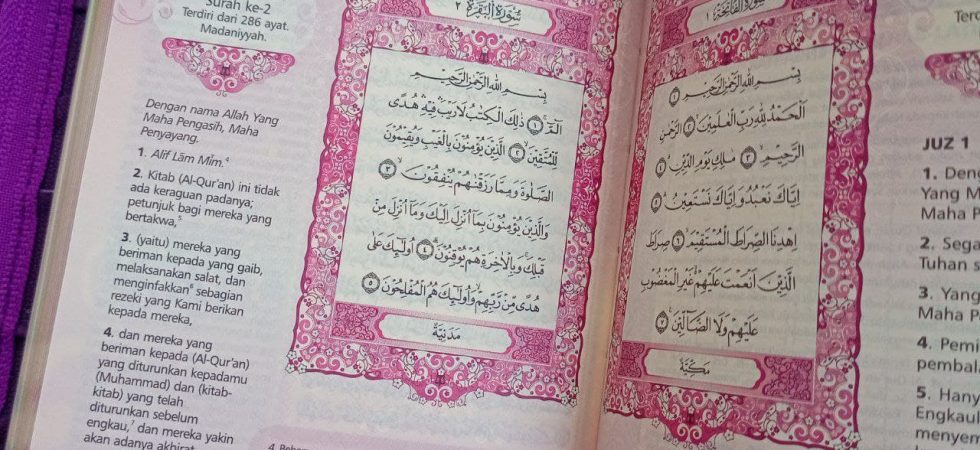 Surah ke-2
Terdiri dari 286 ayat.
Madaniyyah.
Dengan nama Allah Yang
Maha Pengasih, Maha
Penyayang.
1. Alif Lām Mīm.⁴
2. Kitab (Al-Qur'an) ini tidak
ada keraguan padanya;
petunjuk bagi mereka yang
bertakwa,⁵
3. (yaitu) mereka yang
beriman kepada yang gaib,
melaksanakan salat, dan
menginfakkan⁶ sebagian
rezeki yang Kami berikan
kepada mereka,
4. dan mereka yang
beriman kepada (Al-Qur'an)
yang diturunkan kepadamu
(Muhammad) dan (kitab-
kitab) yang telah
diturunkan sebelum
engkau,⁷ dan mereka yakin
akan adanya akhirat
سُوْرَةُ الْبَقَرَةِ ٢
بِسْمِ اللهِ الرَّحْمٰنِ الرَّحِيْمِ
الۤمّۤ ۚ ١ ذٰلِكَ الْكِتٰبُ لَا رَيْبَ ۛ فِيْهِ ۛ هُدًى
لِّلْمُتَّقِيْنَ ۙ ٢ الَّذِيْنَ يُؤْمِنُوْنَ بِالْغَيْبِ وَيُقِيْمُوْنَ
الصَّلٰوةَ وَمِمَّا رَزَقْنٰهُمْ يُنْفِقُوْنَ ۙ ٣
وَالَّذِيْنَ يُؤْمِنُوْنَ بِمَآ اُنْزِلَ اِلَيْكَ وَمَآ اُنْزِلَ مِنْ
قَبْلِكَ ۚ وَبِالْاٰخِرَةِ هُمْ يُوْقِنُوْنَ ۗ ٤ اُولٰۤىِٕكَ عَلٰى
هُدًى مِّنْ رَّبِّهِمْ ۙ وَاُولٰۤىِٕكَ هُمُ الْمُفْلِحُوْنَ ٥
مَدَنِيَّةٌ
سُوْرَةُ الْفَاتِحَةِ ١
بِسْمِ اللهِ الرَّحْمٰنِ الرَّحِيْمِ ١
اَلْحَمْدُ لِلّٰهِ رَبِّ الْعٰلَمِيْنَ ۙ ٢ الرَّحْمٰنِ
الرَّحِيْمِ ۙ ٣ مٰلِكِ يَوْمِ الدِّيْنِ ۗ ٤
اِيَّاكَ نَعْبُدُ وَاِيَّاكَ نَسْتَعِيْنُ ۗ ٥
اِهْدِنَا الصِّرَاطَ الْمُسْتَقِيْمَ ۙ ٦ صِرَاطَ
الَّذِيْنَ اَنْعَمْتَ عَلَيْهِمْ ەۙ غَيْرِ الْمَغْضُوْبِ
عَلَيْهِمْ وَلَا الضَّاۤلِّيْنَ ٧
مَكِّيَّةٌ
JUZ 1
1.
Yang
Maha
2.
Tuhan
3. Yang
Maha
4.
5.